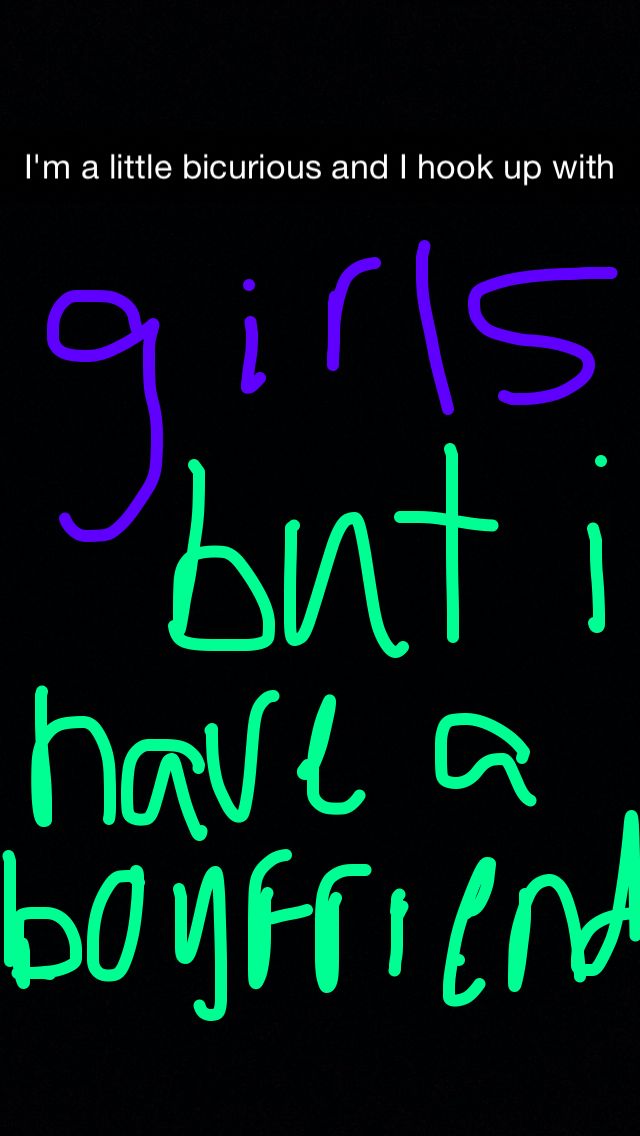 I'm a little bicurious and I hook up with
girls
but i
have a
boyfriend